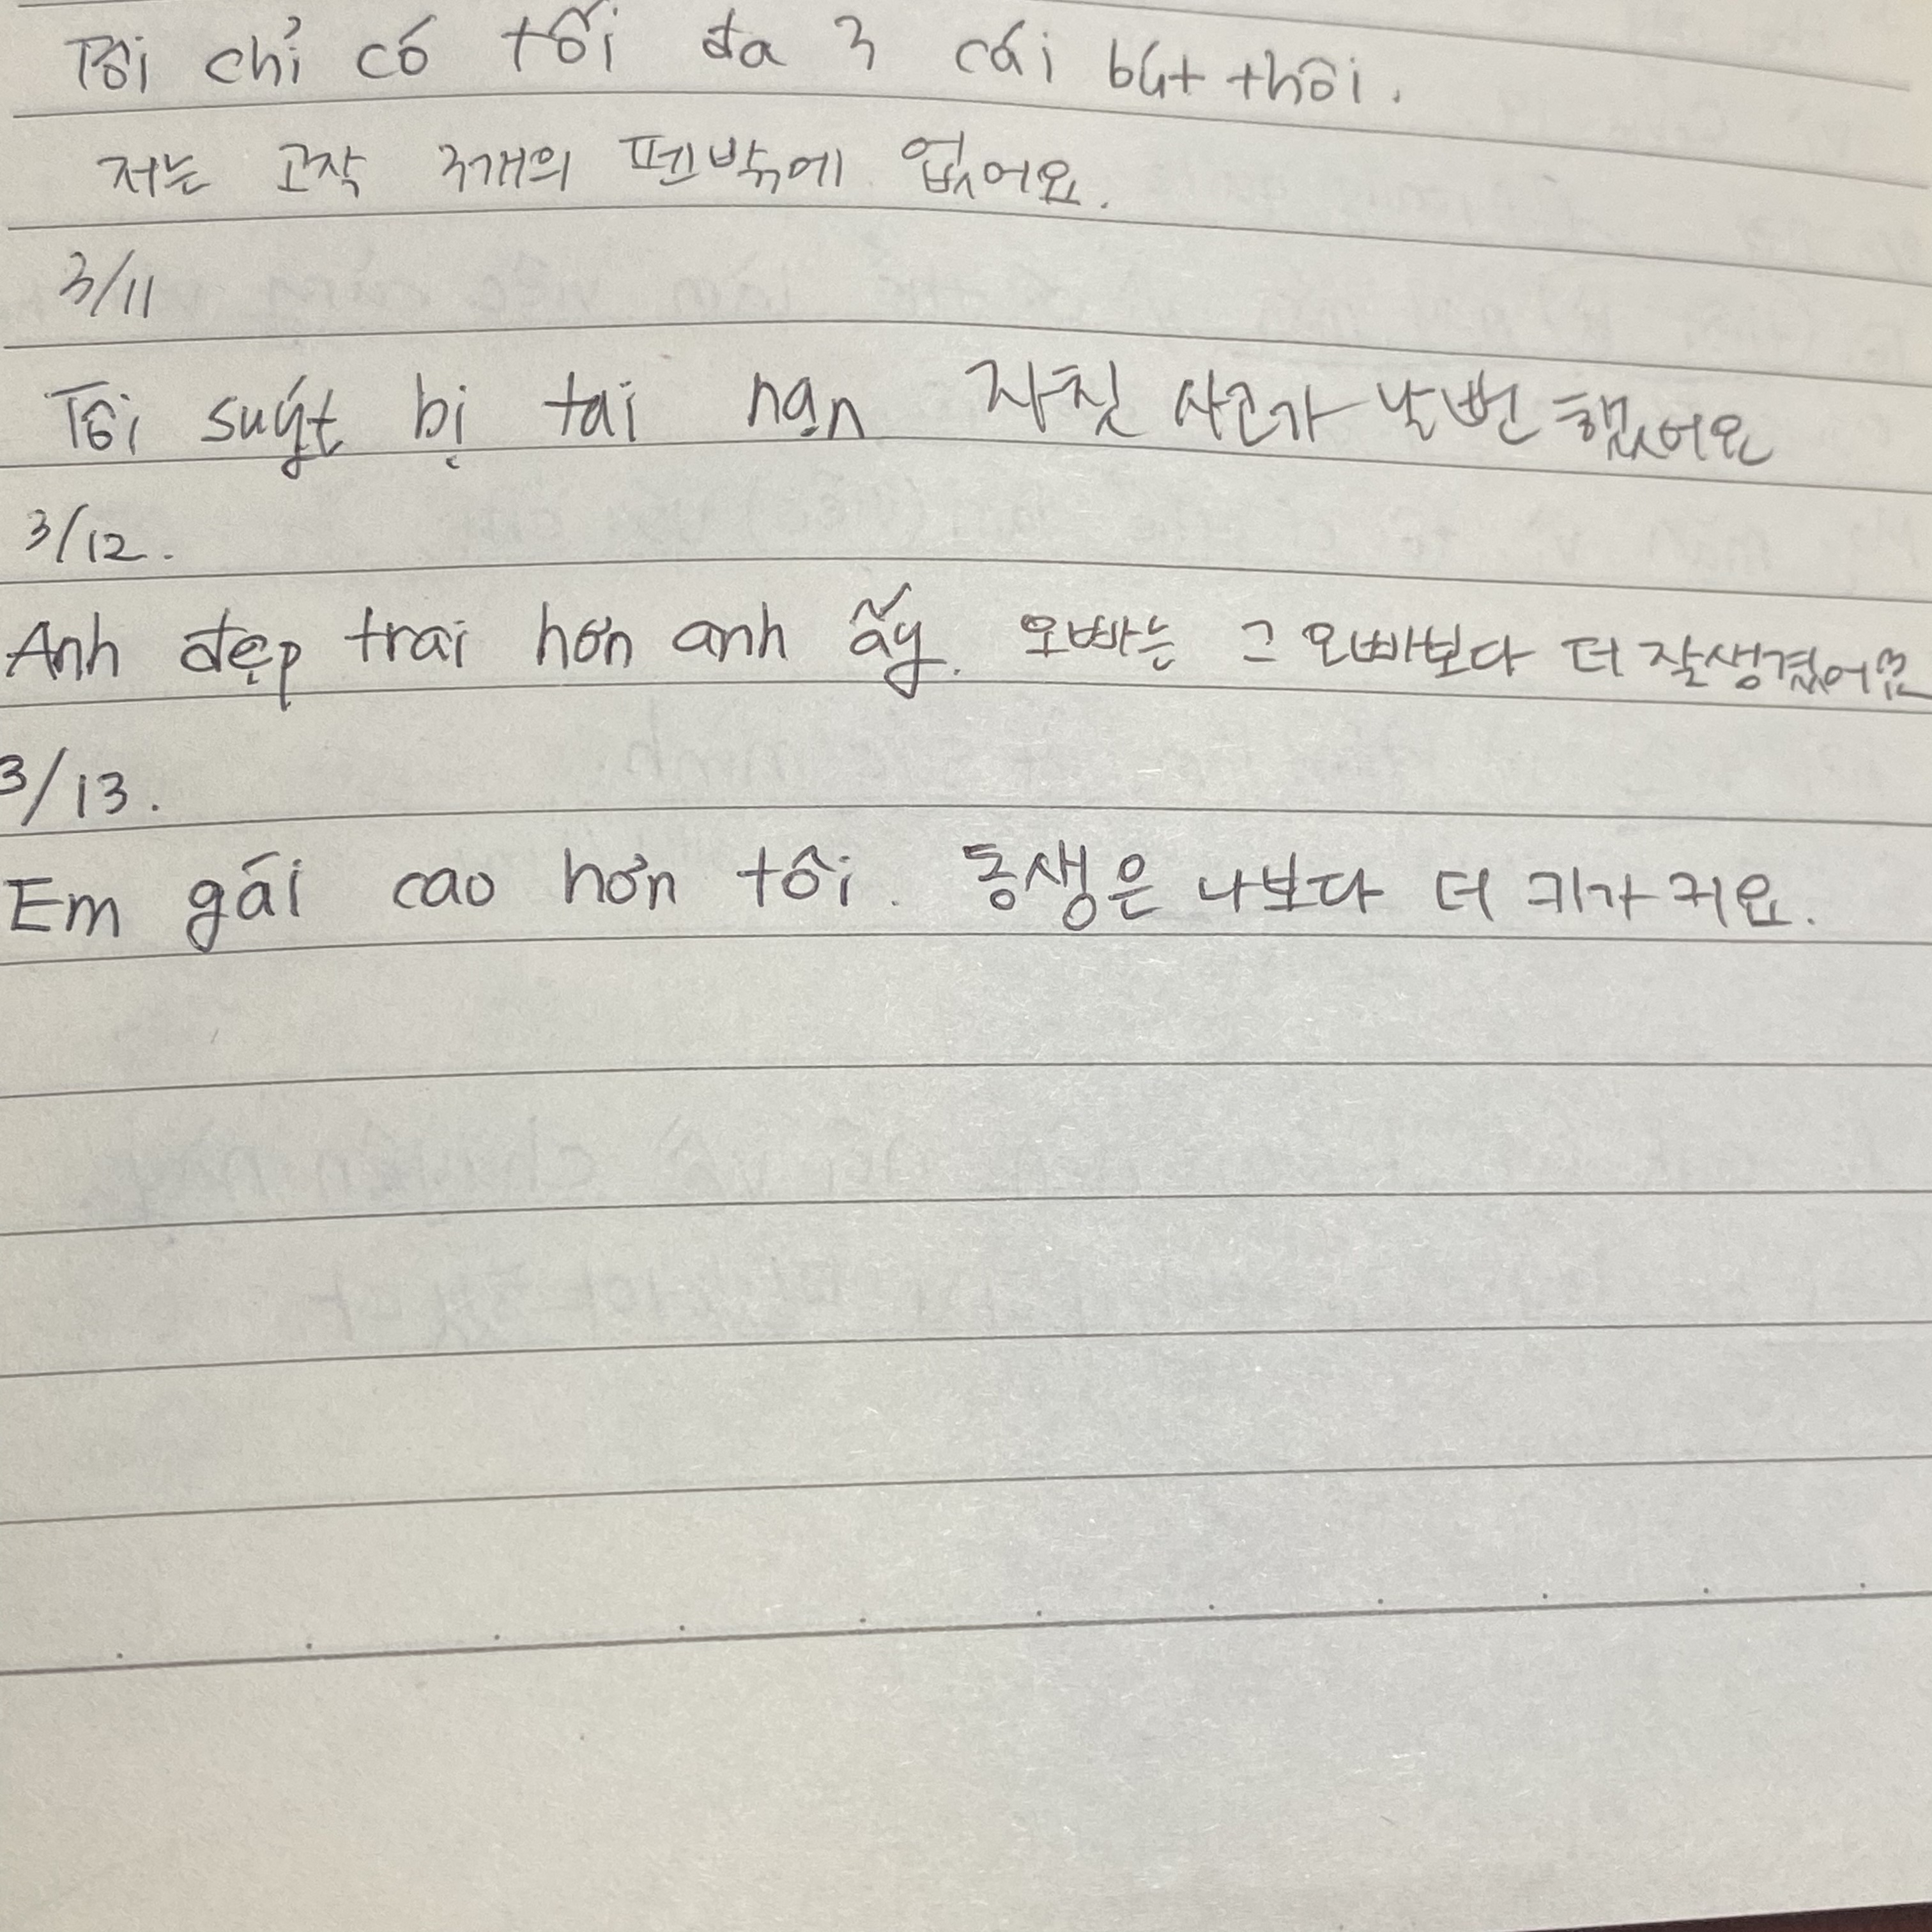 Tôi chỉ có tối đa 3 cái bút thôi.
저는 고작 3개의 펜밖에 없어요.
3/11
Tôi suýt bị tai nạn 자칫 사고가 날뻔 했어요
3/12.
Anh đẹp trai hơn anh ấy. 오빠는 그 오빠보다 더 잘생겼어요
3/13.
Em gái cao hơn tôi. 동생은 나보다 더 키가 커요.